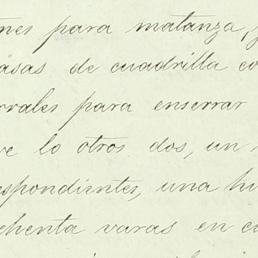 nes para matanza, y
asas de cuadrilla co
rrales para enserrar
ve lo otros dos, un
spondientes, una hu
chenta varas en c